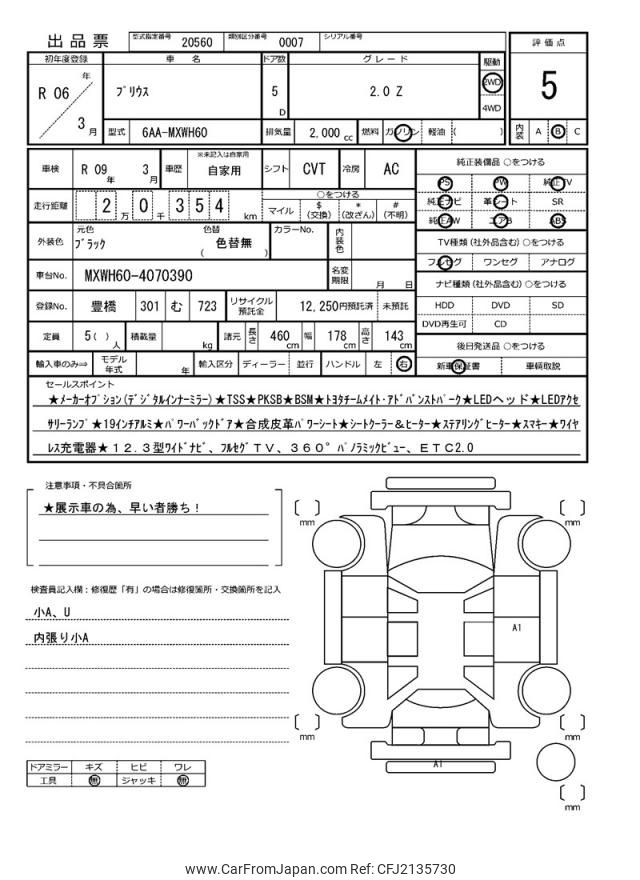 出品票 型式指定番号 20560 類別区分番号 0007 シリアル番号
初年度登録 車名 ドア数 グレード 駆動 評価点
R 06 年 3 月 プリウス 5 D 2.0 Z 2WD 4WD 5
型式 6AA-MXWH60 排気量 2,000 cc 燃料 ガソリン 軽油 ( ) 内装 A B C
車検 R 09 年 3 月 車歴 ※未記入は自家用 自家用 シフト CVT 冷房 AC 純正装備品 ○をつける
PS PW 純正TV
走行距離 2 万 0 千 3 5 4 km ○をつける 純正ナビ 革シート SR
マイル $ (交換) * (改ざん) # (不明) 純正AW エアB ABS
外装色 元色 ブラック 色替 色替無 ( ) カラーNo. 内装色 TV種類 (社外品含む) ○をつける
フルセグ ワンセグ アナログ
車台No. MXWH60-4070390 名変期限 月 日 ナビ種類 (社外品含む) ○をつける
登録No. 豊橋 301 む 723 リサイクル預託金 12,250円預託済 未預託 HDD DVD SD
DVD再生可 CD
定員 5 ( ) 人 積載量 kg 諸元 長さ 460 cm 幅 178 cm 高さ 143 cm 後日発送品 ○をつける
輸入車のみ⇒ モデル年式 年 輸入区分 ディーラー 並行 ハンドル 左 右 新車保証書 車輌取説
セールスポイント
★メーカーオプション(デジタルインナーミラー)★TSS★PKSB★BSM★トヨタチームメイト・アドバンストパーク★LEDヘッド★LEDアクセ
サリーランプ★19インチアルミ★パワーバックドア★合成皮革パワーシート★シートクーラー&ヒーター★ステアリングヒーター★スマキー★ワイヤ
レス充電器★12.3型ワイドナビ、フルセグTV、360°パノラミックビュー、ETC2.0
注意事項・不具合箇所
★展示車の為、早い者勝ち!
検査員記入欄:修復歴「有」の場合は修復箇所・交換箇所を記入
小A、U
内張り小A
ドアミラー キズ ヒビ ワレ
工具 無 ジャッキ 無
[ ] mm
[ ] mm
A1
[ ] mm
[ ] mm
A1
[ ] mm
www.CarFromJapan.com Ref: CFJ2135730